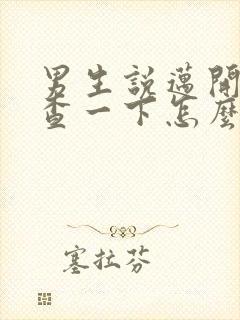 男生說邁開
查一下怎麼
塞拉芬